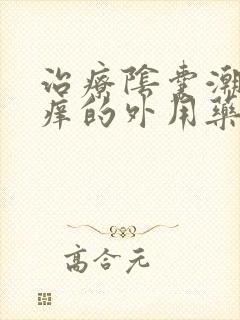 治療陰囊潮
癢的外用藥
高合元